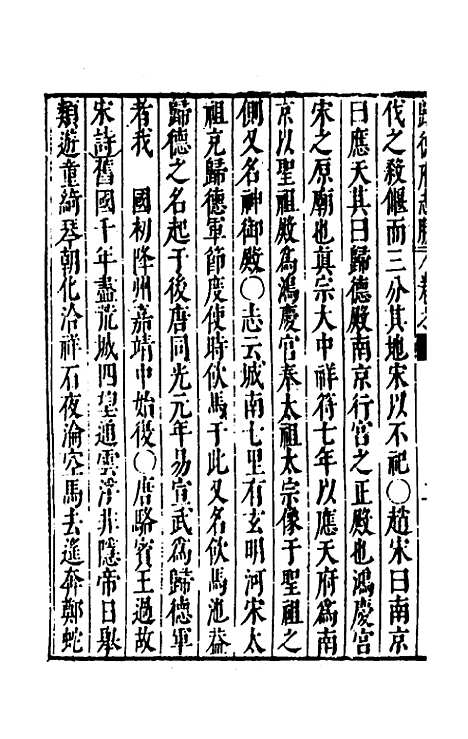 伐之殺偃而三分其地宋以不祀〇趙宋曰南京
曰應天其曰歸德殿南京行宮之正殿也鴻慶宮
宋之原廟也真宗大中祥符七年以應天府為南
京以聖祖殿為鴻慶宮奉太祖太宗像于聖祖之
側又名神御殿〇志云城南七里有玄明河宋太
祖克歸德軍節度使時飲馬于此又名飲馬池葢
歸德之名起于後唐同光元年易宣武為歸德軍
者我　國初降州嘉靖中始復〇唐駱賓王過故
宋詩舊國千年盡荒城四望通雲浮非隱帝日舉
類遊童綺琴朝化洽祥石夜淪空馬去遙奔鄭蛇